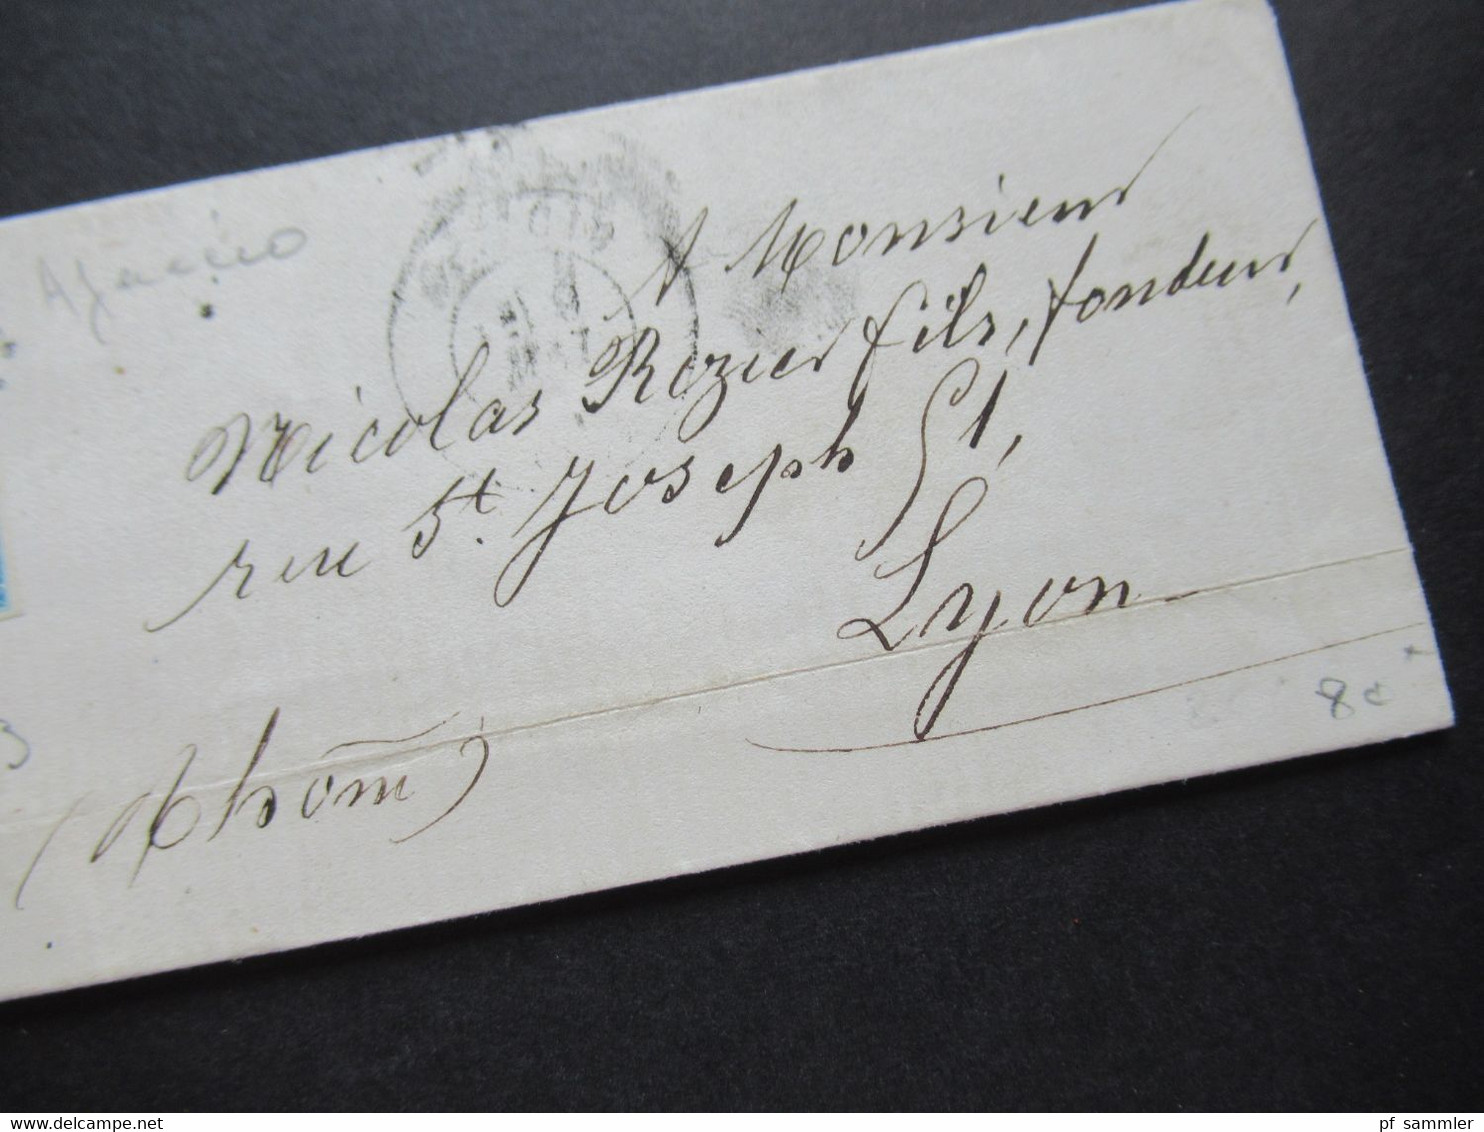 Ajaccio
A Monsieur
Nicolas Rozier fils, fondeur,
rue St. Joseph 51,
Lyon
(Rhône)
8c
pf sammler